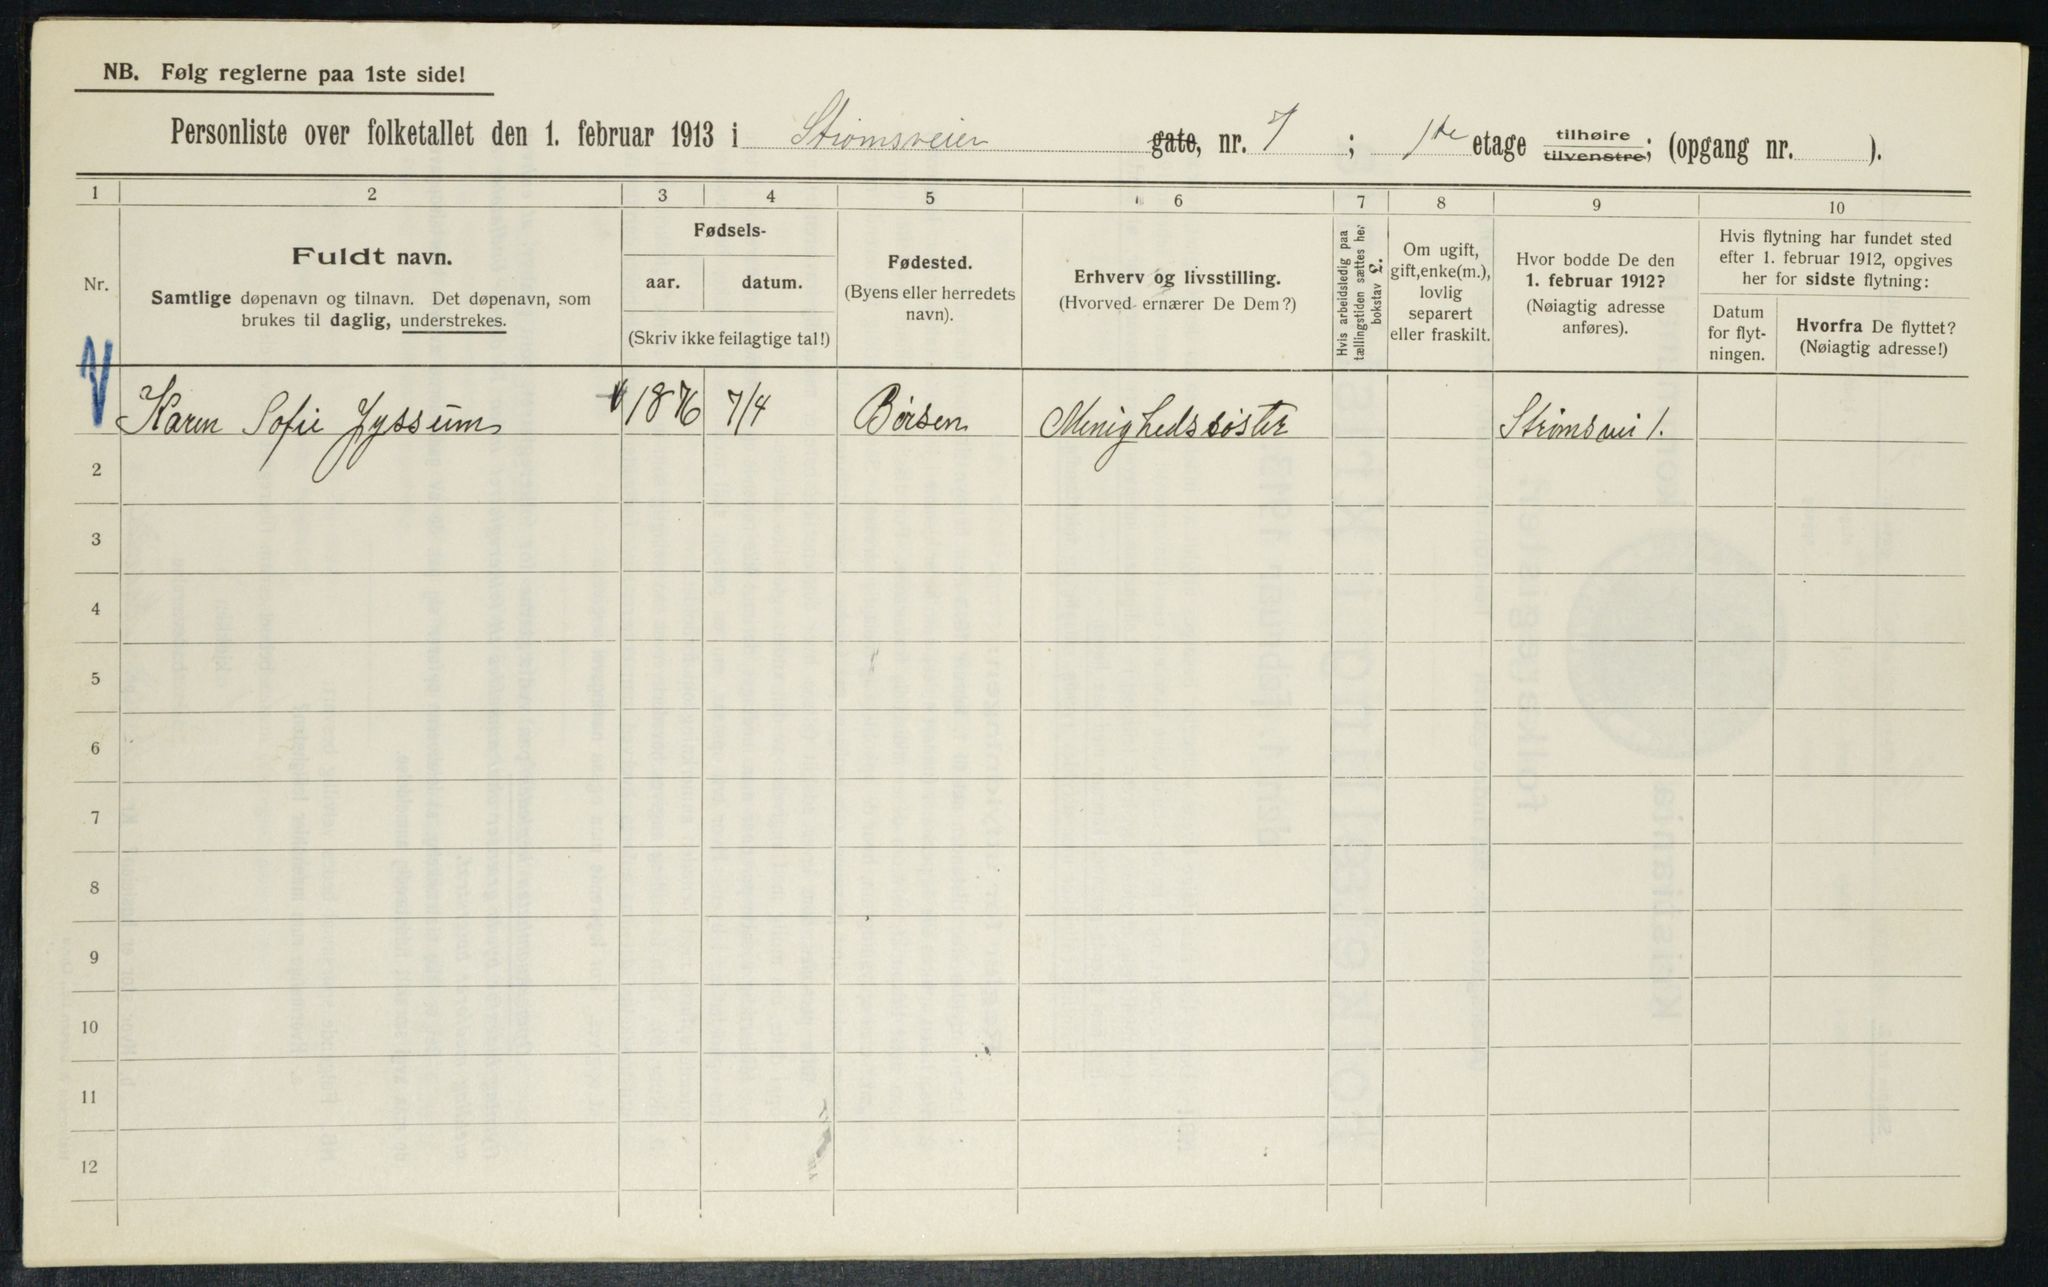 NB. Følg reglerne paa 1ste side!
Personliste over folketallet den 1. februar 1913 i Strømsveien gate, nr. 7 ; 1ste etage tilhøire tilvenstre; (opgang nr. ).
1 2 3 4 5 6 7 8 9 10
Nr.
Fuldt navn.
Samtlige døpenavn og tilnavn. Det døpenavn, som
brukes til daglig, understrekes.
Fødsels-
aar. datum.
(Skriv ikke feilagtige tal!)
Fødested.
(Byens eller herredets
navn).
Erhverv og livsstilling.
(Hvorved ernærer De Dem?)
Hvis arbeidsledig paa
tællingstiden sættes her
bokstav L.
Om ugift,
gift, enke(m.),
lovlig
separert
eller fraskilt.
Hvor bodde De den
1. februar 1912?
(Nøiagtig adresse
anføres).
Hvis flytning har fundet sted
efter 1. februar 1912, opgives
her for sidste flytning:
Datum
for flyt-
ningen.
Hvorfra De flyttet?
(Nøiagtig adresse!)
Karen Sofie Jyssum 1876 7/4 Børsen Menighedssøster Strømsvei 1.
2
3
4
5
6
7
8
9
10
11
12